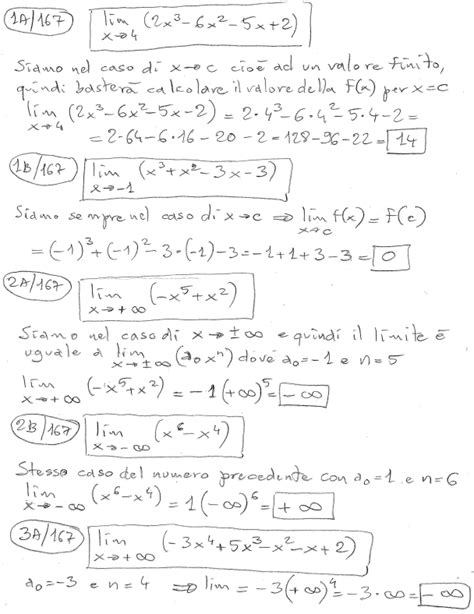 1A/167 lim x→4 (2x³-6x²-5x+2)
Siamo nel caso di x→c cioè ad un valore finito,
quindi basterà calcolare il valore della f(x) per x=c
lim x→4 (2x³-6x²-5x-2) = 2·4³-6·4²-5·4-2 =
= 2·64-6·16-20-2 = 128-96-22 = 14
1B/167 lim x→-1 (x³+x²-3x-3)
Siamo sempre nel caso di x→c ⇒ lim x→c f(x) = f(c)
= (-1)³+(-1)²-3·(-1)-3 = -1+1+3-3 = 0
2A/167 lim x→+∞ (-x⁵+x²)
Siamo nel caso di x→±∞ e quindi il limite è
uguale a lim x→±∞ (a₀xⁿ) dove a₀=-1 e n=5
lim x→+∞ (-x⁵+x²) = -1(+∞)⁵ = -∞
2B/167 lim x→-∞ (x⁶-x⁴)
Stesso caso del numero precedente con a₀=1 e n=6
lim x→-∞ (x⁶-x⁴) = 1(-∞)⁶ = +∞
3A/167 lim x→+∞ (-3x⁴+5x³-x²-x+2)
a₀=-3 e n=4 ⇒ lim = -3(+∞)⁴ = -3·∞ = -∞